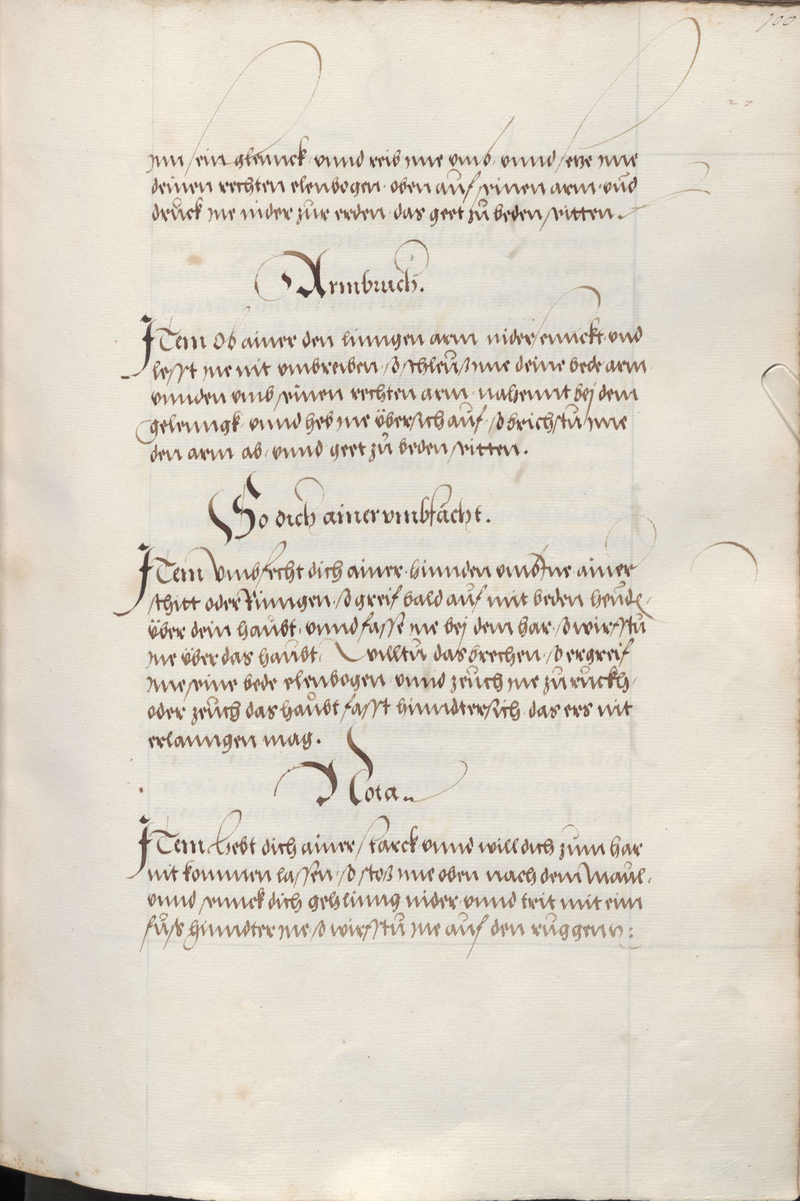 100
27
inn sein glennck vnnd reib ime vmb vnnd setze ime
deinen rechten elenbogen oben auf seinen arm vnd
druck ine nider zur erden das geet zů beden seitten.
Armbruch.
Item Ob ainer den linngen arm nider sennckt vnd
lesst ine nit vmbreiben so schleůß ime deine bede arm
vnnden vmb seinen rechten arm nahennt bej dem
gelenngk vnnd heb ine übersich auf so brichstu ime
den arm ab vnnd geet zů beden seitten.
So dich ainer vmbfächt.
Item Vmbfecht dich ainer hinnden vmb ainer
schitt oder Rinngen so greif bald auf mit beden hend
über dein haůbt vnnd fasse ine bei dem har so wirfstu
ine über das haubt. Willtu das brechen so ergreif
ime seine bede elenbogen vnnd zeuch ine zuruckh
oder zeuch das haůbt fasst hinndtersich das ers nit
erlanngen mag.
Nota
Item Hebt dich ainer starck vnnd will dich zum har
nit kommen lassen so stoß ime oben nach dem Maul
vnnd sennck dich gehlinng nider vnnd trit mit eim
fůß hinndter ine so wirfstu ine auf den ruggenn :